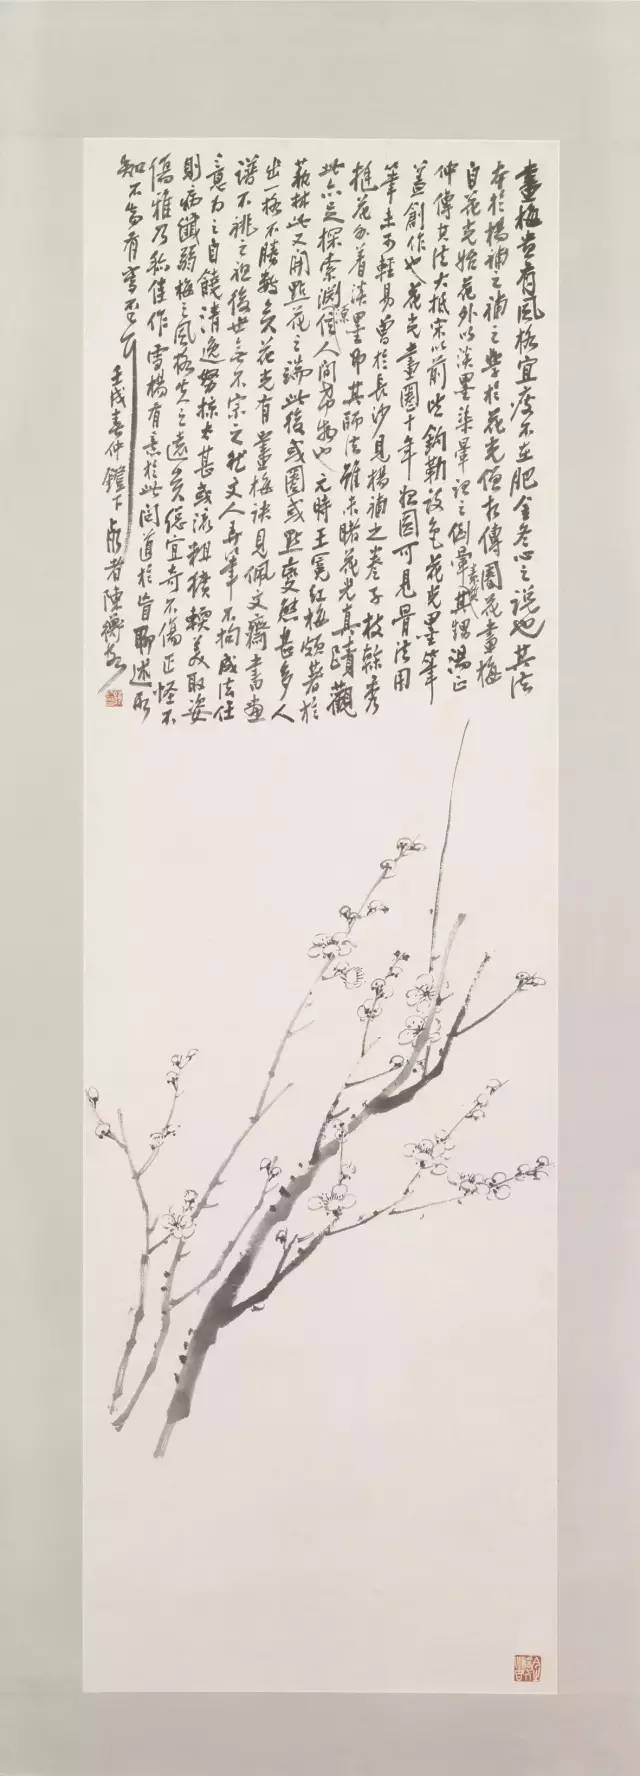 畫梅貴有風格宜瘦不在肥金冬心之說也其法
本於楊補之補之學於花光僧相傳圈花畫梅
自花光始花外以淡墨染暈謂之倒暈其甥湯正
仲傳其法大抵宋以前皆鉤勒設色花光墨筆
蓋創作也花光畫圈十年
筆未可輕易曾於長沙見楊補之卷子枝榦秀
挺花外着淡墨即其師法雖未睹花光真蹟觀
此亦足探索淵源信人間希物也元時王冕紅梅頗著於
藝林此又開點花之端此後或圈或點變態甚多人
出一格不勝數矣花光有畫梅訣見佩文齋書畫
譜不祧之祖後世無不宗之然文人弄筆不拘成法任
意為之自饒清逸努掠太甚或流粗獷輭美取姿
則病纖弱梅之風格失之遠矣總宜奇不傷正怪不
傷雅乃稱佳作雪楊有意於此問道於盲聊述所
知不為有當否
壬戌春仲鐙下 者陳衡恪